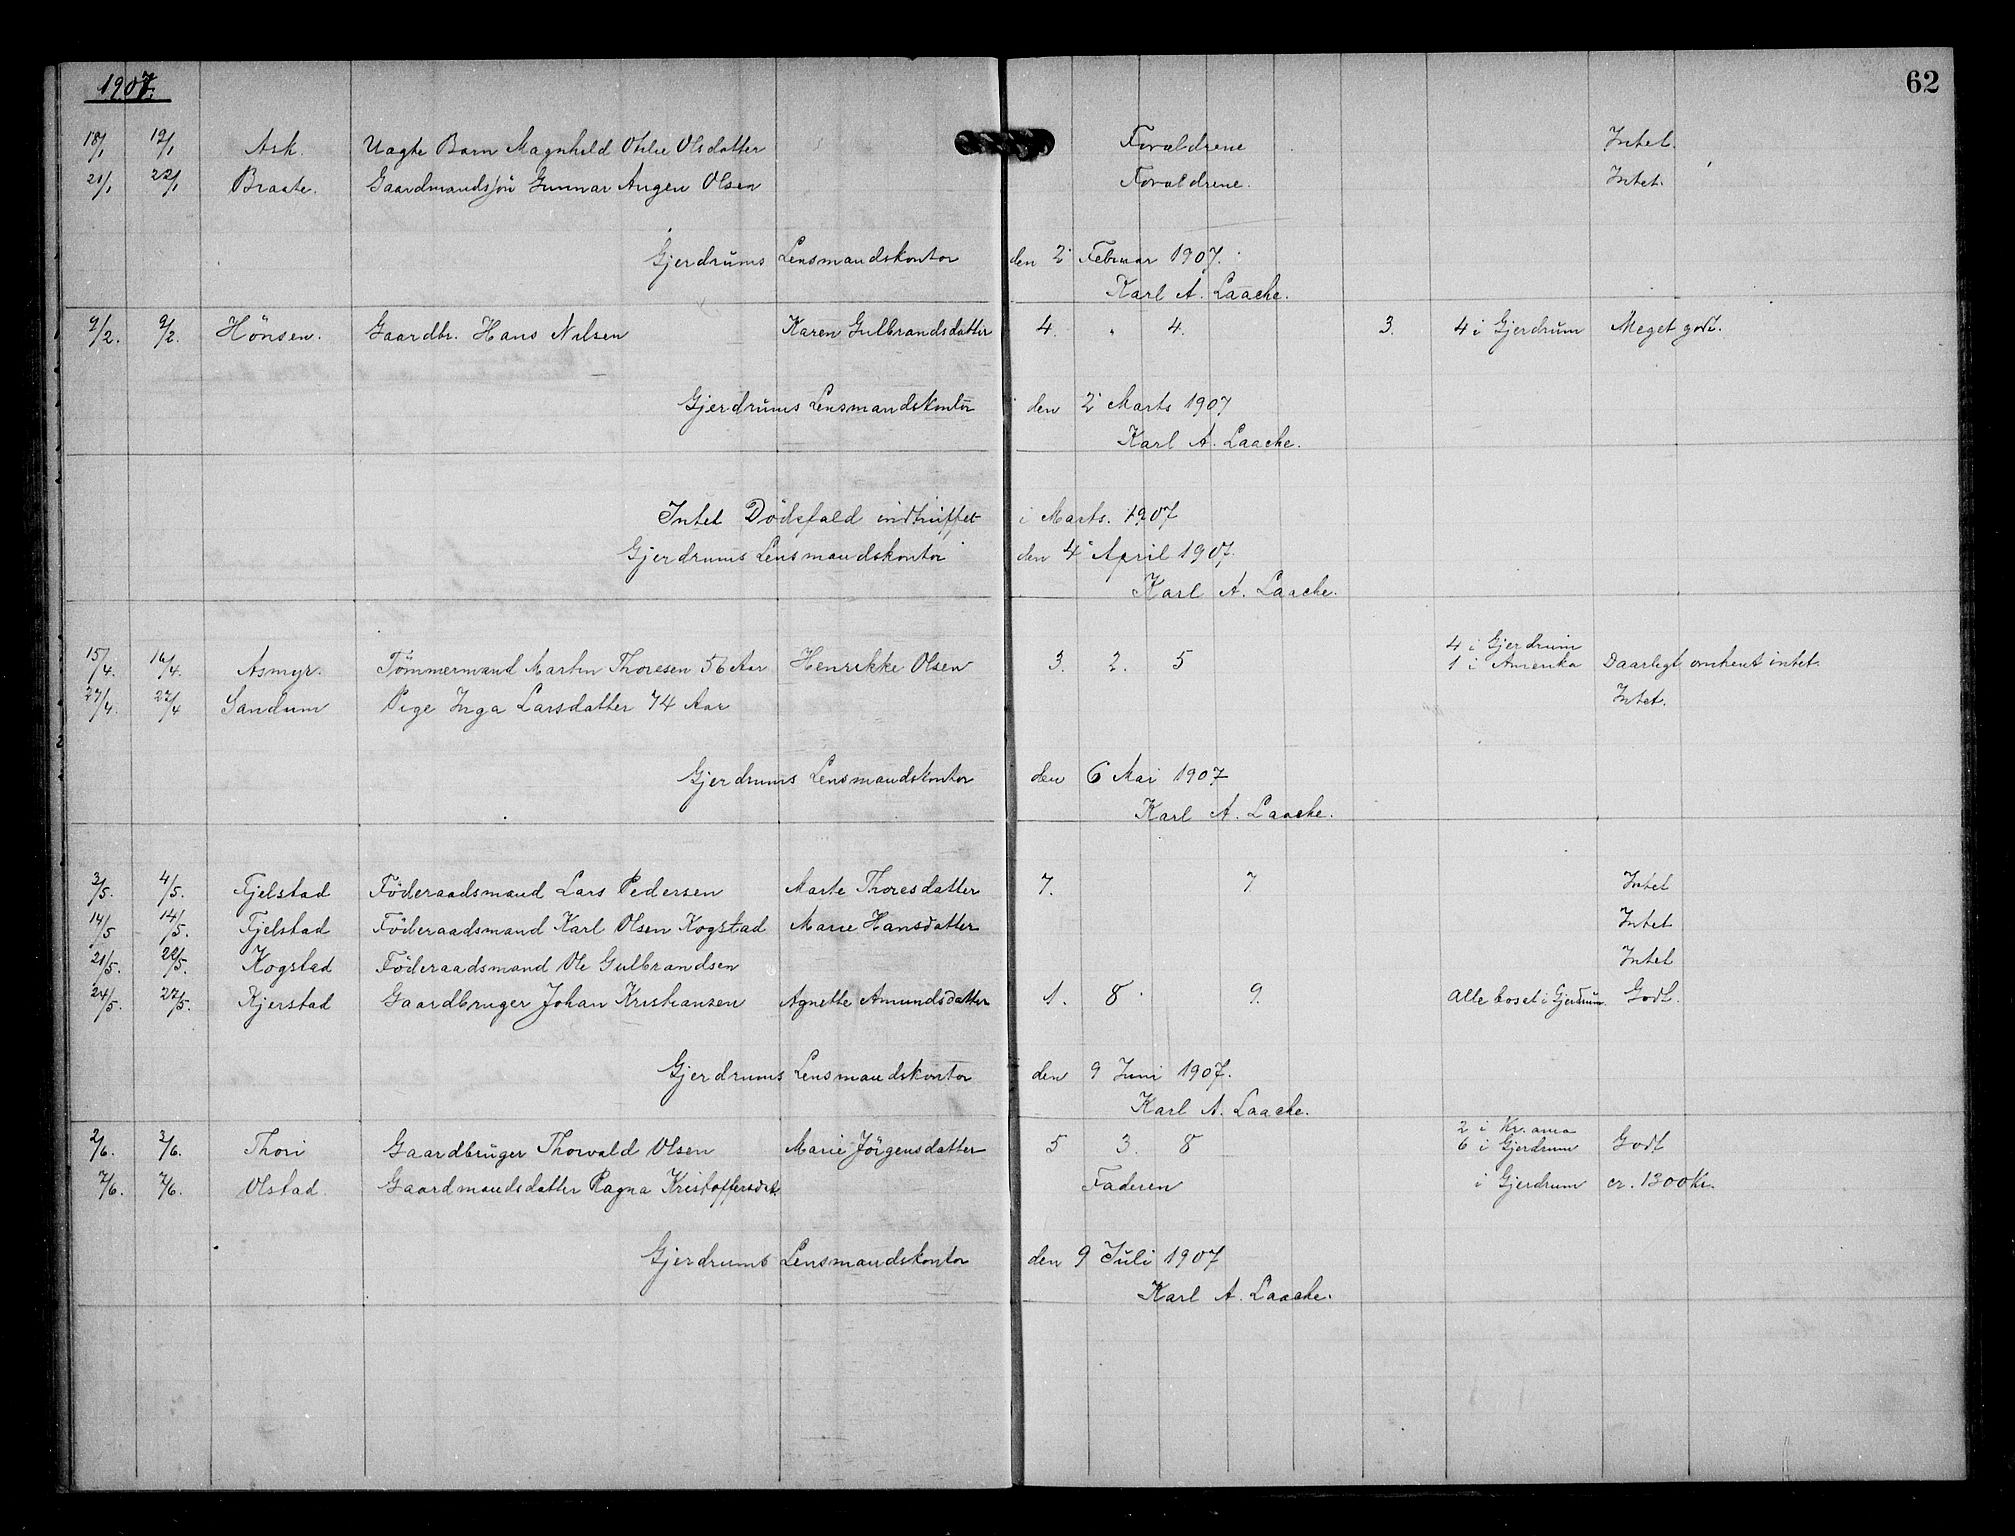 1907. 62
18/1 19/1 Ask. Uagte Barn Magnhild Othilie Olsdatter Forældrene Intet.
21/1 22/1 Braate. Gaardmandssøn Gunnar Angen Olsen Forældrene. Intet.
Gjerdrums Lensmandskontor den 2 Februar 1907.
Karl A. Laache.
9/2. 9/2. Hønsen. Gaardbr. Hans Nilsen Karen Gulbrandsdatter 4. " 4. 3. 4 i Gjerdrum Meget godt.
Gjerdrums Lensmandskontor den 2 Marts 1907
Karl A. Laache.
Intet Dødsfald indtruffet i Marts. 1907
Gjerdrums Lensmandskontor den 4 April 1907.
Karl A. Laache.
4 i Gjerdrum
15/4. 16/4. Asmyr. Tømmermand Martin Thoresen 56 Aar Henrikke Olsen 3. 2. 5 1 i Amerika Daarligt omtrent intet.
27/4. 27/4 Sandum Pige Inga Larsdatter 74 Aar Intet.
Gjerdrums Lensmandskontor den 6 Mai 1907
Karl A. Laache.
3/5. 4/5. Fjelstad Føderaadsmand Lars Pedersen Marte Thoresdatter 7. 7 Intet
14/5 14/5. Fjelstad Føderaadsmand Karl Olsen Kogstad Marie Hansdatter Intet
21/5. 22/5. Kogstad Føderaadsmand Ole Gulbrandsen Intet
24/5. 27/5. Kjerstad Gaardbruger Johan Kristiansen Agnette Amundsdatter 1. 8 9. Alle bosat i Gjerdrum. Godt.
Gjerdrums Lensmandskontor den 9 Juni 1907.
Karl A. Laache.
2 i Kr.ania
2/6. 3/6. Thori Gaardbruger Thorvald Olsen Marie Jørgensdatter 5 3. 8 6 i Gjerdrum Godt
7/6. 7/6. Olstad. Gaardmandsdatter Ragna Kristoffersdtr. Faderen i Gjerdrum cr. 1300 Kr.
Gjerdrums Lensmandskontor den 9 Juli 1907
Karl A. Laache.